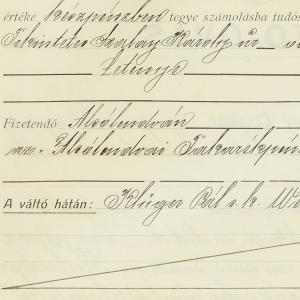 értéke készpénzben tegye számolásba tudós
Tekintetes Szalay Károly úr
Letenye
Fizetendő Alsólendván
az Alsólendvai Takarékpén
A váltó hátán: Klüger Pál s. k.